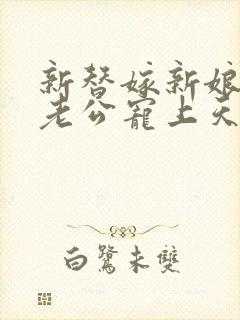 新替嫁新娘
老公寵上天
白鷺未雙